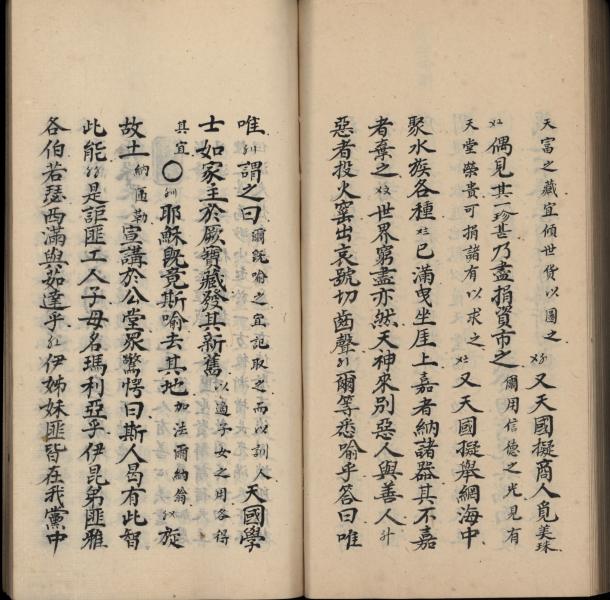 天富之藏宜傾世貨以圖之又天國擬商人覓美珠
偶見其一珍甚乃盡捐資市之爾用信德之光見有
天堂榮貴可捐諸有以求之又天國擬舉網海中
聚水族各種已滿曳坐厓上嘉者納諸器其不嘉
者棄之世界窮盡亦然天神來別惡人與善人
惡者投火窰出哀號切齒聲爾等悉喻乎答曰唯
唯謂之曰爾既喻之宜記取之而以訓人天國學
士如家主於厥寶藏發其新舊以適子女之用各得
其宜〇耶穌既竟斯喻去其地加法爾納翁旋
故土納匝勒宣講於公堂眾驚愕曰斯人曷有此智
此能是詎匪工人子母名瑪利亞乎伊昆弟匪雅
各伯若瑟西滿與茹達乎伊姊妹匪皆在我黨中